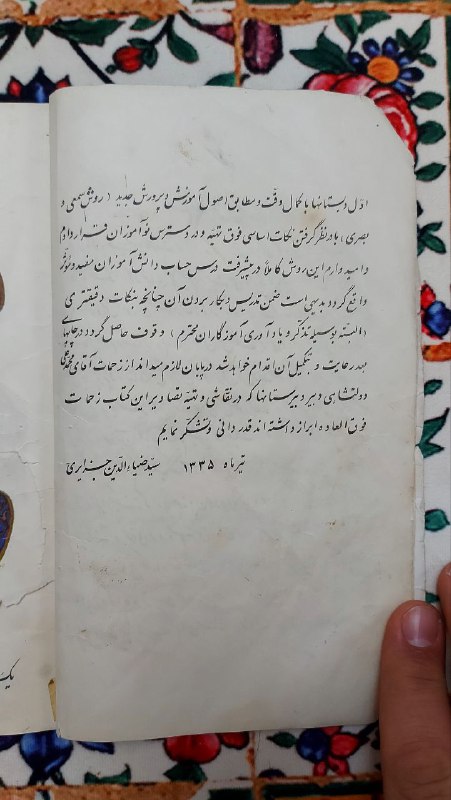 اول دبستانها با کمال دقت و مطابق اصول آموزش و پرورش جدید ( روش سمعی و
بصری ) با در نظر گرفتن نکات اساسی فوق تهیه و در دسترس نوآموزان قرار دادم
و امیدوارم این روش کاملاً در پیشرفت درس حساب دانش آموزان مفید و مؤثر
واقع گردد بدیهی است ضمن تدریس و بکار بردن آن چنانچه بنکات دقیقتری
( البته بوسیله تذکر و یادآوری آموزگاران محترم ) وقوف حاصل گردد در چاپهای
بعد رعایت و تکمیل آن اقدام خواهد شد در پایان لازم میداند از زحمات آقای محمد علی
دولتشاهی دبیر دبیرستانها که در نقاشی و تهیه تصاویر این کتاب زحمات
فوق العاده ابراز داشته اند قدردانی و تشکر نمایم
تیرماه ۱۳۳۵ سید ضیاءالدین جزایری
یک